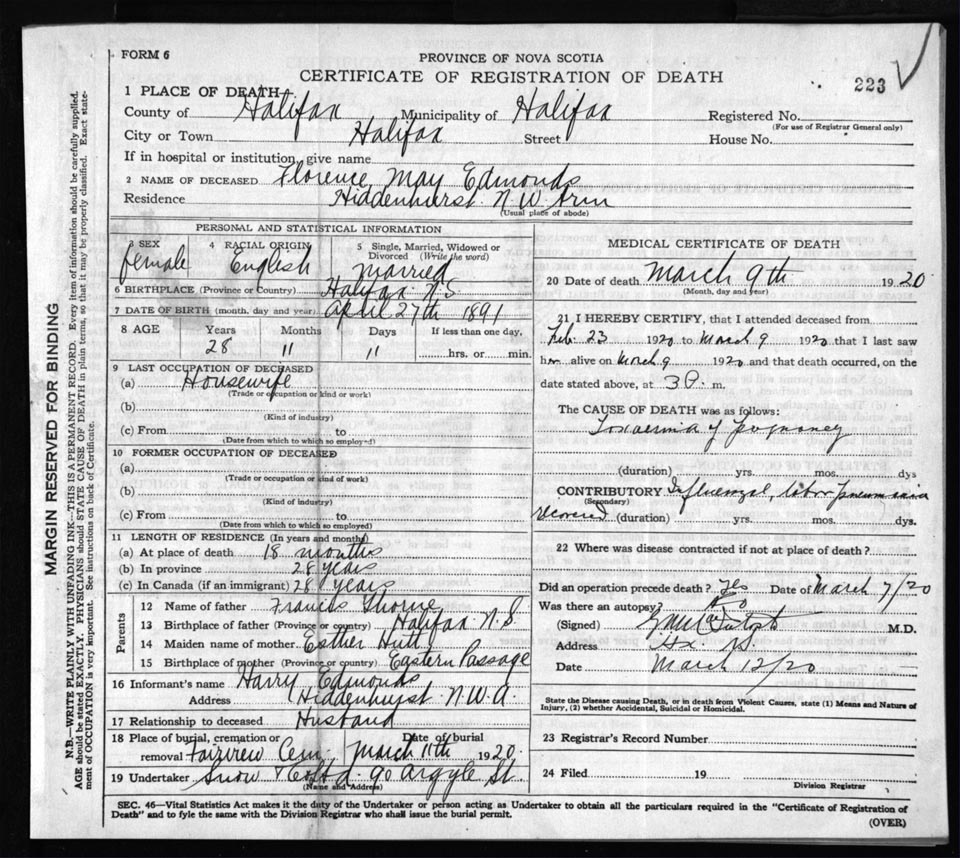 FORM 6
PROVINCE OF NOVA SCOTIA
CERTIFICATE OF REGISTRATION OF DEATH
223
1 PLACE OF DEATH
County of Halifax Municipality of Halifax Registered No.
(For use of Registrar General only)
City or Town Halifax Street House No.
If in hospital or institution, give name
2 NAME OF DECEASED Florence May Edmonds
Residence Hiddenhurst N.W. Arm
(Usual place of abode)
PERSONAL AND STATISTICAL INFORMATION
3 SEX female
4 RACIAL ORIGIN English
5 Single, Married, Widowed or Divorced (Write the word) Married
6 BIRTHPLACE (Province or Country) Halifax N.S.
7 DATE OF BIRTH (month, day and year) April 27th 1891
8 AGE Years Months Days If less than one day,
28 11 11 hrs. or min.
9 LAST OCCUPATION OF DECEASED
(a) Housewife
(Trade or occupation or kind or work)
(b)
(Kind of industry)
(c) From to
(Date from which to which so employed)
10 FORMER OCCUPATION OF DECEASED
(a)
(Trade or occupation or kind of work)
(b)
(Kind of industry)
(c) From to
(Date from which to which so employed)
11 LENGTH OF RESIDENCE (In years and months)
(a) At place of death 18 months
(b) In province 28 years
(c) In Canada (if an immigrant) 28 years
Parents
12 Name of father Francis Thorne
13 Birthplace of father (Province or country) Halifax N.S.
14 Maiden name of mother Esther Hutt
15 Birthplace of mother (Province or country) Eastern Passage
16 Informant's name Harry Edmonds
Address Hiddenhurst N.W.A
17 Relationship to deceased Husband
18 Place of burial, cremation or removal Fairview Cem. Date of burial March 11th 1920.
19 Undertaker Snow & Co Ltd. 90 Argyle St.
(Name and Address)
MEDICAL CERTIFICATE OF DEATH
20 Date of death March 9th 1920
(Month, day and year)
21 I HEREBY CERTIFY, that I attended deceased from
Feb. 23 1920 to March 9 1920 that I last saw
h alive on March 9 1920 and that death occurred, on the
date stated above, at 3 P. m.
The CAUSE OF DEATH was as follows:
Toxaemia of pregnancy
(duration) yrs. mos. dys
CONTRIBUTORY Influenzal, lobar pneumonia
(Secondary)
recovered (duration) yrs. mos. dys.
22 Where was disease contracted if not at place of death?
Did an operation precede death? Yes Date of March 7/20
Was there an autopsy? No
(Signed) M.D.
Address Hx.
Date March 12/20
State the Disease causing Death, or in Death from Violent Causes, state (1) Means and Nature of
Injury, (2) whether Accidental, Suicidal or Homicidal.
23 Registrar's Record Number
24 Filed 19
Division Registrar
SEC. 46—Vital Statistics Act makes it the duty of the Undertaker or person acting as Undertaker to obtain all the particulars required in the "Certificate of Registration of
Death" and to fyle the same with the Division Registrar who shall issue the burial permit.
(OVER)
MARGIN RESERVED FOR BINDING
N.B.—WRITE PLAINLY WITH UNFADING INK—THIS IS A PERMANENT RECORD. Every item of information should be carefully supplied.
AGE should be stated EXACTLY. PHYSICIANS should STATE CAUSE OF DEATH in plain terms, so that it may be properly classified. Exact state-
ment of OCCUPATION is very important. See instructions on back of Certificate.